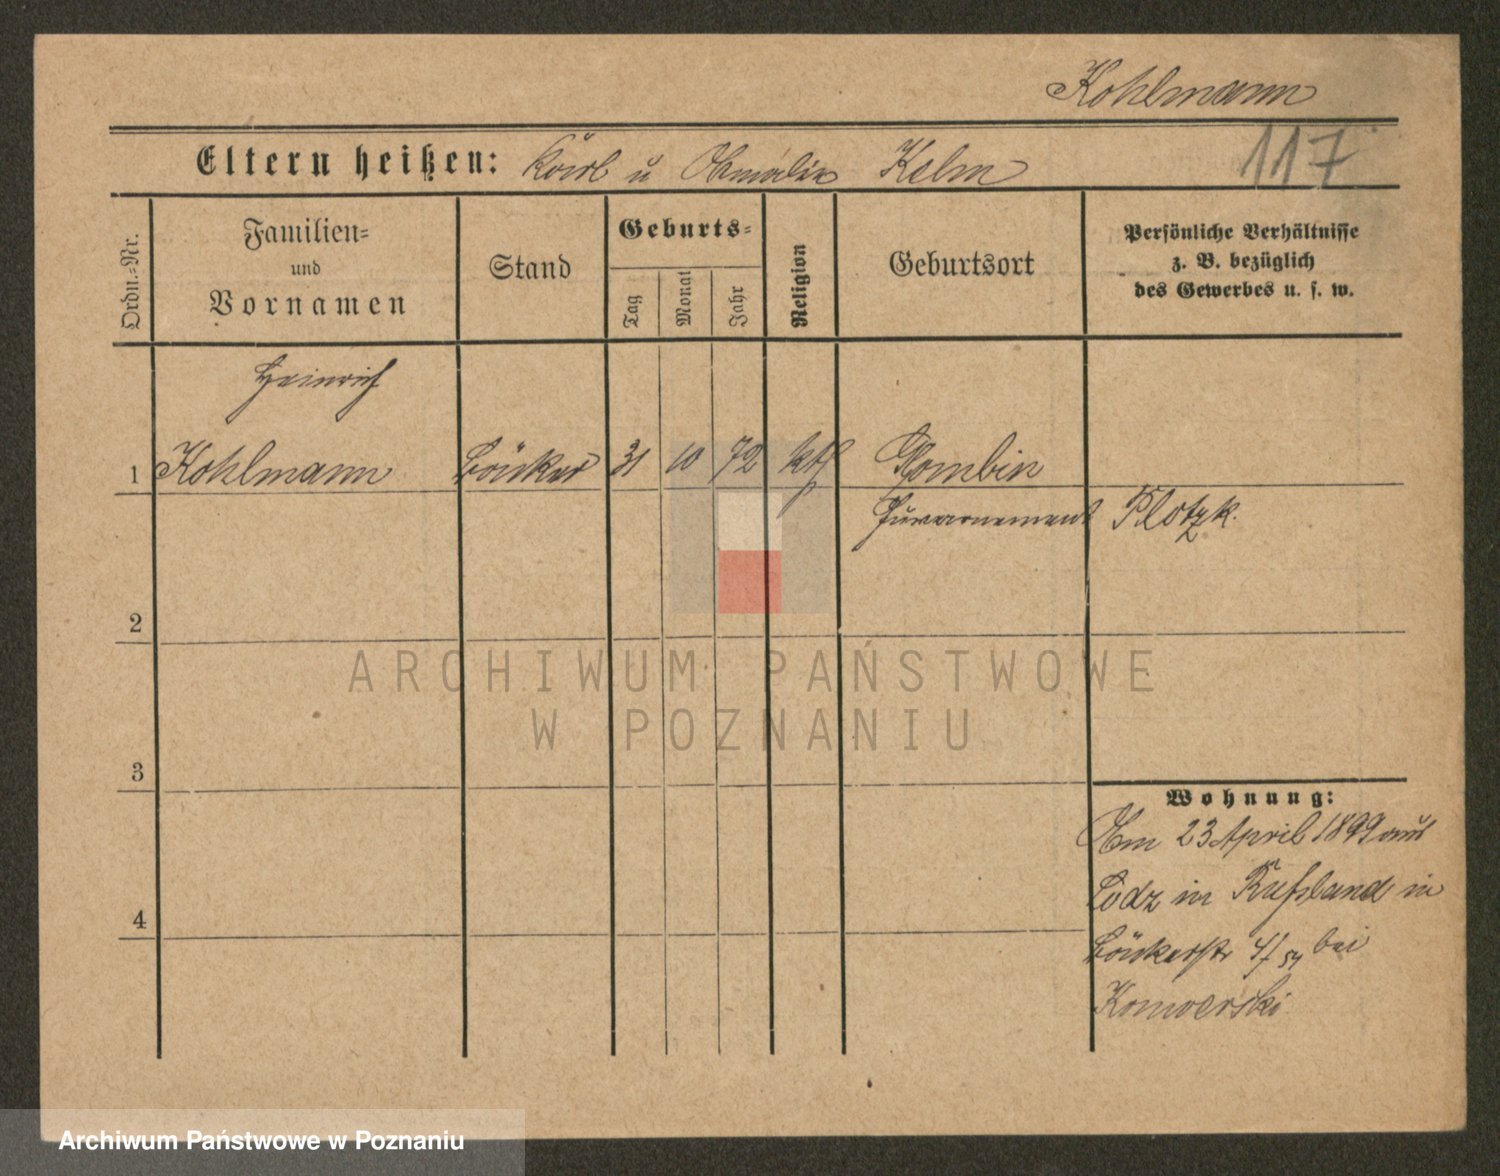 Kohlmann
117
Eltern heißen: Karl u Amalie Kelm
Ordn.=Nr.
Familien=
und
Vornamen
Stand
Geburts=
Tag
Monat
Jahr
Religion
Geburtsort
Persönliche Verhältnisse
z. B. bezüglich
des Gewerbes u. s. w.
Heinrich
1 Kohlmann Bäcker 31 10 72 kth Gombin
Guvernement Plotzk.
2
3
4
Wohnung:
Am 23 April 1899 aus
Lodz in Rußland in
Bäckerstr 4/54 bei
Komoerski
ARCHIWUM PAŃSTWOWE
W POZNANIU
Archiwum Państwowe w Poznaniu